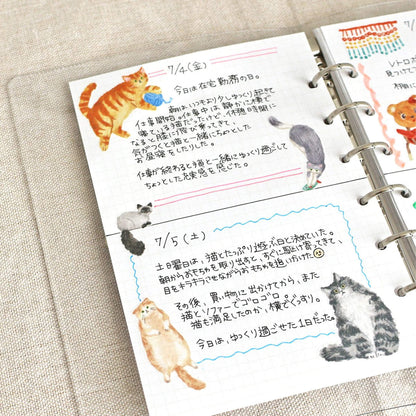 7/4(金)
今日は在宅勤務の日。
朝はいつもより少しゆっくり起きて
仕事開始。仕事中は静かに横で
寝ている猫だったけど、休憩時間に
なると膝に飛び乗ってきて、
気がつくと猫と一緒にちょっとした
お昼寝をしたりした。
仕事が終わると猫と一緒にゆっくり過ごして
ちょっとした充実感を感じた。
7/5(土)
土日曜日は、猫とたっぷり遊ぶ日と決めていた。
朝からおもちゃを取り出すと、すぐに駆け寄ってきて、
目をキラキラさせながらおもちゃを追いかけた
その後、買い物に出かけてから、また
猫とソファーでゴロゴロ。
猫も満足したのか、横でぐっすり。
今日は、ゆっくり過ごせた1日だった。
レトロ
見つけて
不機